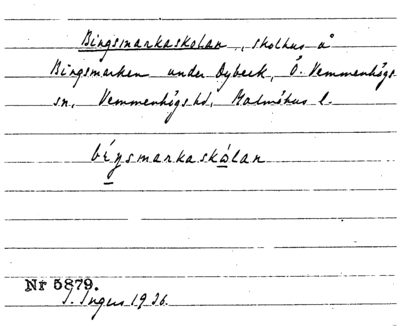 Bingsmarkaskolan, skolhus å
Bingsmarken under Dybeck, Ö. Vemmenhögs
sn, Vemmenhögs hd, Malmöhus l.
bíŋsmarkaskọ́lan
Nr 5879.
I. Ingers 1936.